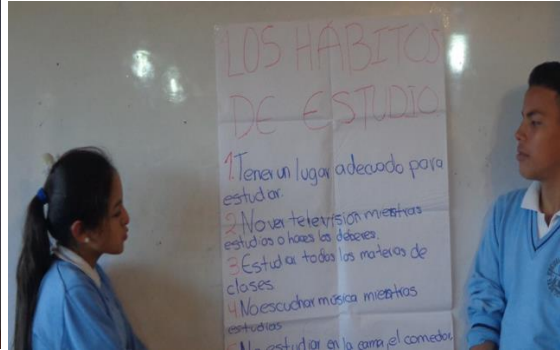 LOS HÁBITOS
DE ESTUDIO
1. Tener un lugar adecuado para
estudiar.
2. No ver televisión mientras
estudias o haces los deberes.
3 Estudiar todas las materias de
clases
4 No escuchar música mientras
estudias
5 No estudiar en la cama, el comedor